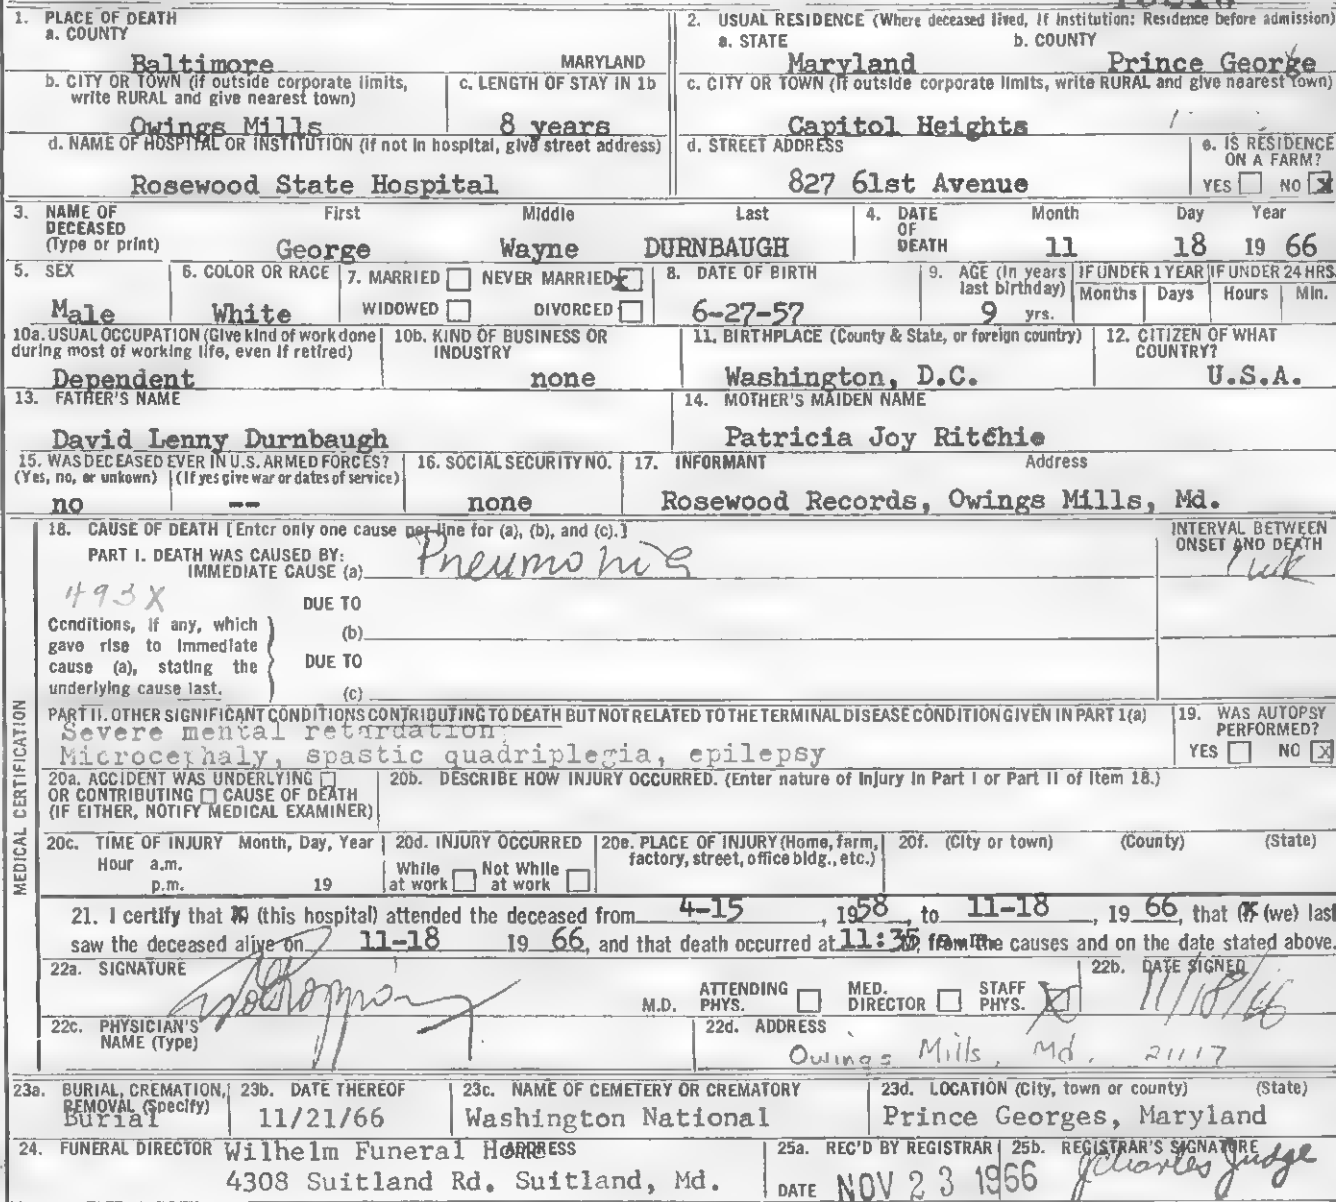 1. PLACE OF DEATH
a. COUNTY
Baltimore MARYLAND
b. CITY OR TOWN (if outside corporate limits, write RURAL and give nearest town)
Owings Mills
c. LENGTH OF STAY IN 1b
8 years
d. NAME OF HOSPITAL OR INSTITUTION (if not in hospital, give street address)
Rosewood State Hospital
2. USUAL RESIDENCE (Where deceased lived, If institution: Residence before admission)
a. STATE
Maryland
b. COUNTY
Prince George
c. CITY OR TOWN (If outside corporate limits, write RURAL and give nearest town)
Capitol Heights
d. STREET ADDRESS
827 61st Avenue
e. IS RESIDENCE ON A FARM?
YES NO X
3. NAME OF DECEASED (Type or print)
First Middle Last
George Wayne DURNBAUGH
4. DATE OF DEATH
Month Day Year
11 18 19 66
5. SEX
Male
6. COLOR OR RACE
White
7. MARRIED NEVER MARRIED X
WIDOWED DIVORCED
8. DATE OF BIRTH
6-27-57
9. AGE (In years last birthday)
9 yrs.
IF UNDER 1 YEAR
Months Days
IF UNDER 24 HRS.
Hours Min.
10a. USUAL OCCUPATION (Give kind of work done during most of working life, even if retired)
Dependent
10b. KIND OF BUSINESS OR INDUSTRY
none
11. BIRTHPLACE (County & State, or foreign country)
Washington, D.C.
12. CITIZEN OF WHAT COUNTRY?
U.S.A.
13. FATHER'S NAME
David Lenny Durnbaugh
14. MOTHER'S MAIDEN NAME
Patricia Joy Ritchie
15. WAS DECEASED EVER IN U.S. ARMED FORCES?
(Yes, no, or unkown) (If yes give war or dates of service)
no --
16. SOCIAL SECURITY NO.
none
17. INFORMANT Address
Rosewood Records, Owings Mills, Md.
MEDICAL CERTIFICATION
18. CAUSE OF DEATH [Enter only one cause per line for (a), (b), and (c).]
PART I. DEATH WAS CAUSED BY:
IMMEDIATE CAUSE (a) Pneumonia
INTERVAL BETWEEN ONSET AND DEATH
1 wk
493X
DUE TO
(b)
Conditions, if any, which gave rise to immediate cause (a), stating the underlying cause last.
DUE TO
(c)
PART II. OTHER SIGNIFICANT CONDITIONS CONTRIBUTING TO DEATH BUT NOT RELATED TO THE TERMINAL DISEASE CONDITION GIVEN IN PART 1(a)
Severe mental retardation;
Microcephaly, spastic quadriplegia, epilepsy
19. WAS AUTOPSY PERFORMED?
YES NO X
20a. ACCIDENT WAS UNDERLYING
OR CONTRIBUTING CAUSE OF DEATH
(IF EITHER, NOTIFY MEDICAL EXAMINER)
20b. DESCRIBE HOW INJURY OCCURRED. (Enter nature of injury in Part I or Part II of item 18.)
20c. TIME OF INJURY Month, Day, Year
Hour a.m.
p.m. 19
20d. INJURY OCCURRED
While at work Not While at work
20e. PLACE OF INJURY (Home, farm, factory, street, office bldg., etc.)
20f. (City or town) (County) (State)
21. I certify that (this hospital) attended the deceased from 4-15, 1958, to 11-18, 19 66, that (we) last
saw the deceased alive on 11-18 19 66, and that death occurred at 11:35 from the causes and on the date stated above.
22a. SIGNATURE
M.D. ATTENDING PHYS. MED. DIRECTOR STAFF PHYS. X
22b. DATE SIGNED
11/18/66
22c. PHYSICIAN'S NAME (Type)
22d. ADDRESS
Owings Mills, Md. 21117
23a. BURIAL, CREMATION, REMOVAL (Specify)
Burial
23b. DATE THEREOF
11/21/66
23c. NAME OF CEMETERY OR CREMATORY
Washington National
23d. LOCATION (City, town or county) (State)
Prince Georges, Maryland
24. FUNERAL DIRECTOR ADDRESS
Wilhelm Funeral Home
4308 Suitland Rd. Suitland, Md.
25a. REC'D BY REGISTRAR
DATE NOV 23 1966
25b. REGISTRAR'S SIGNATURE
Charles Judge